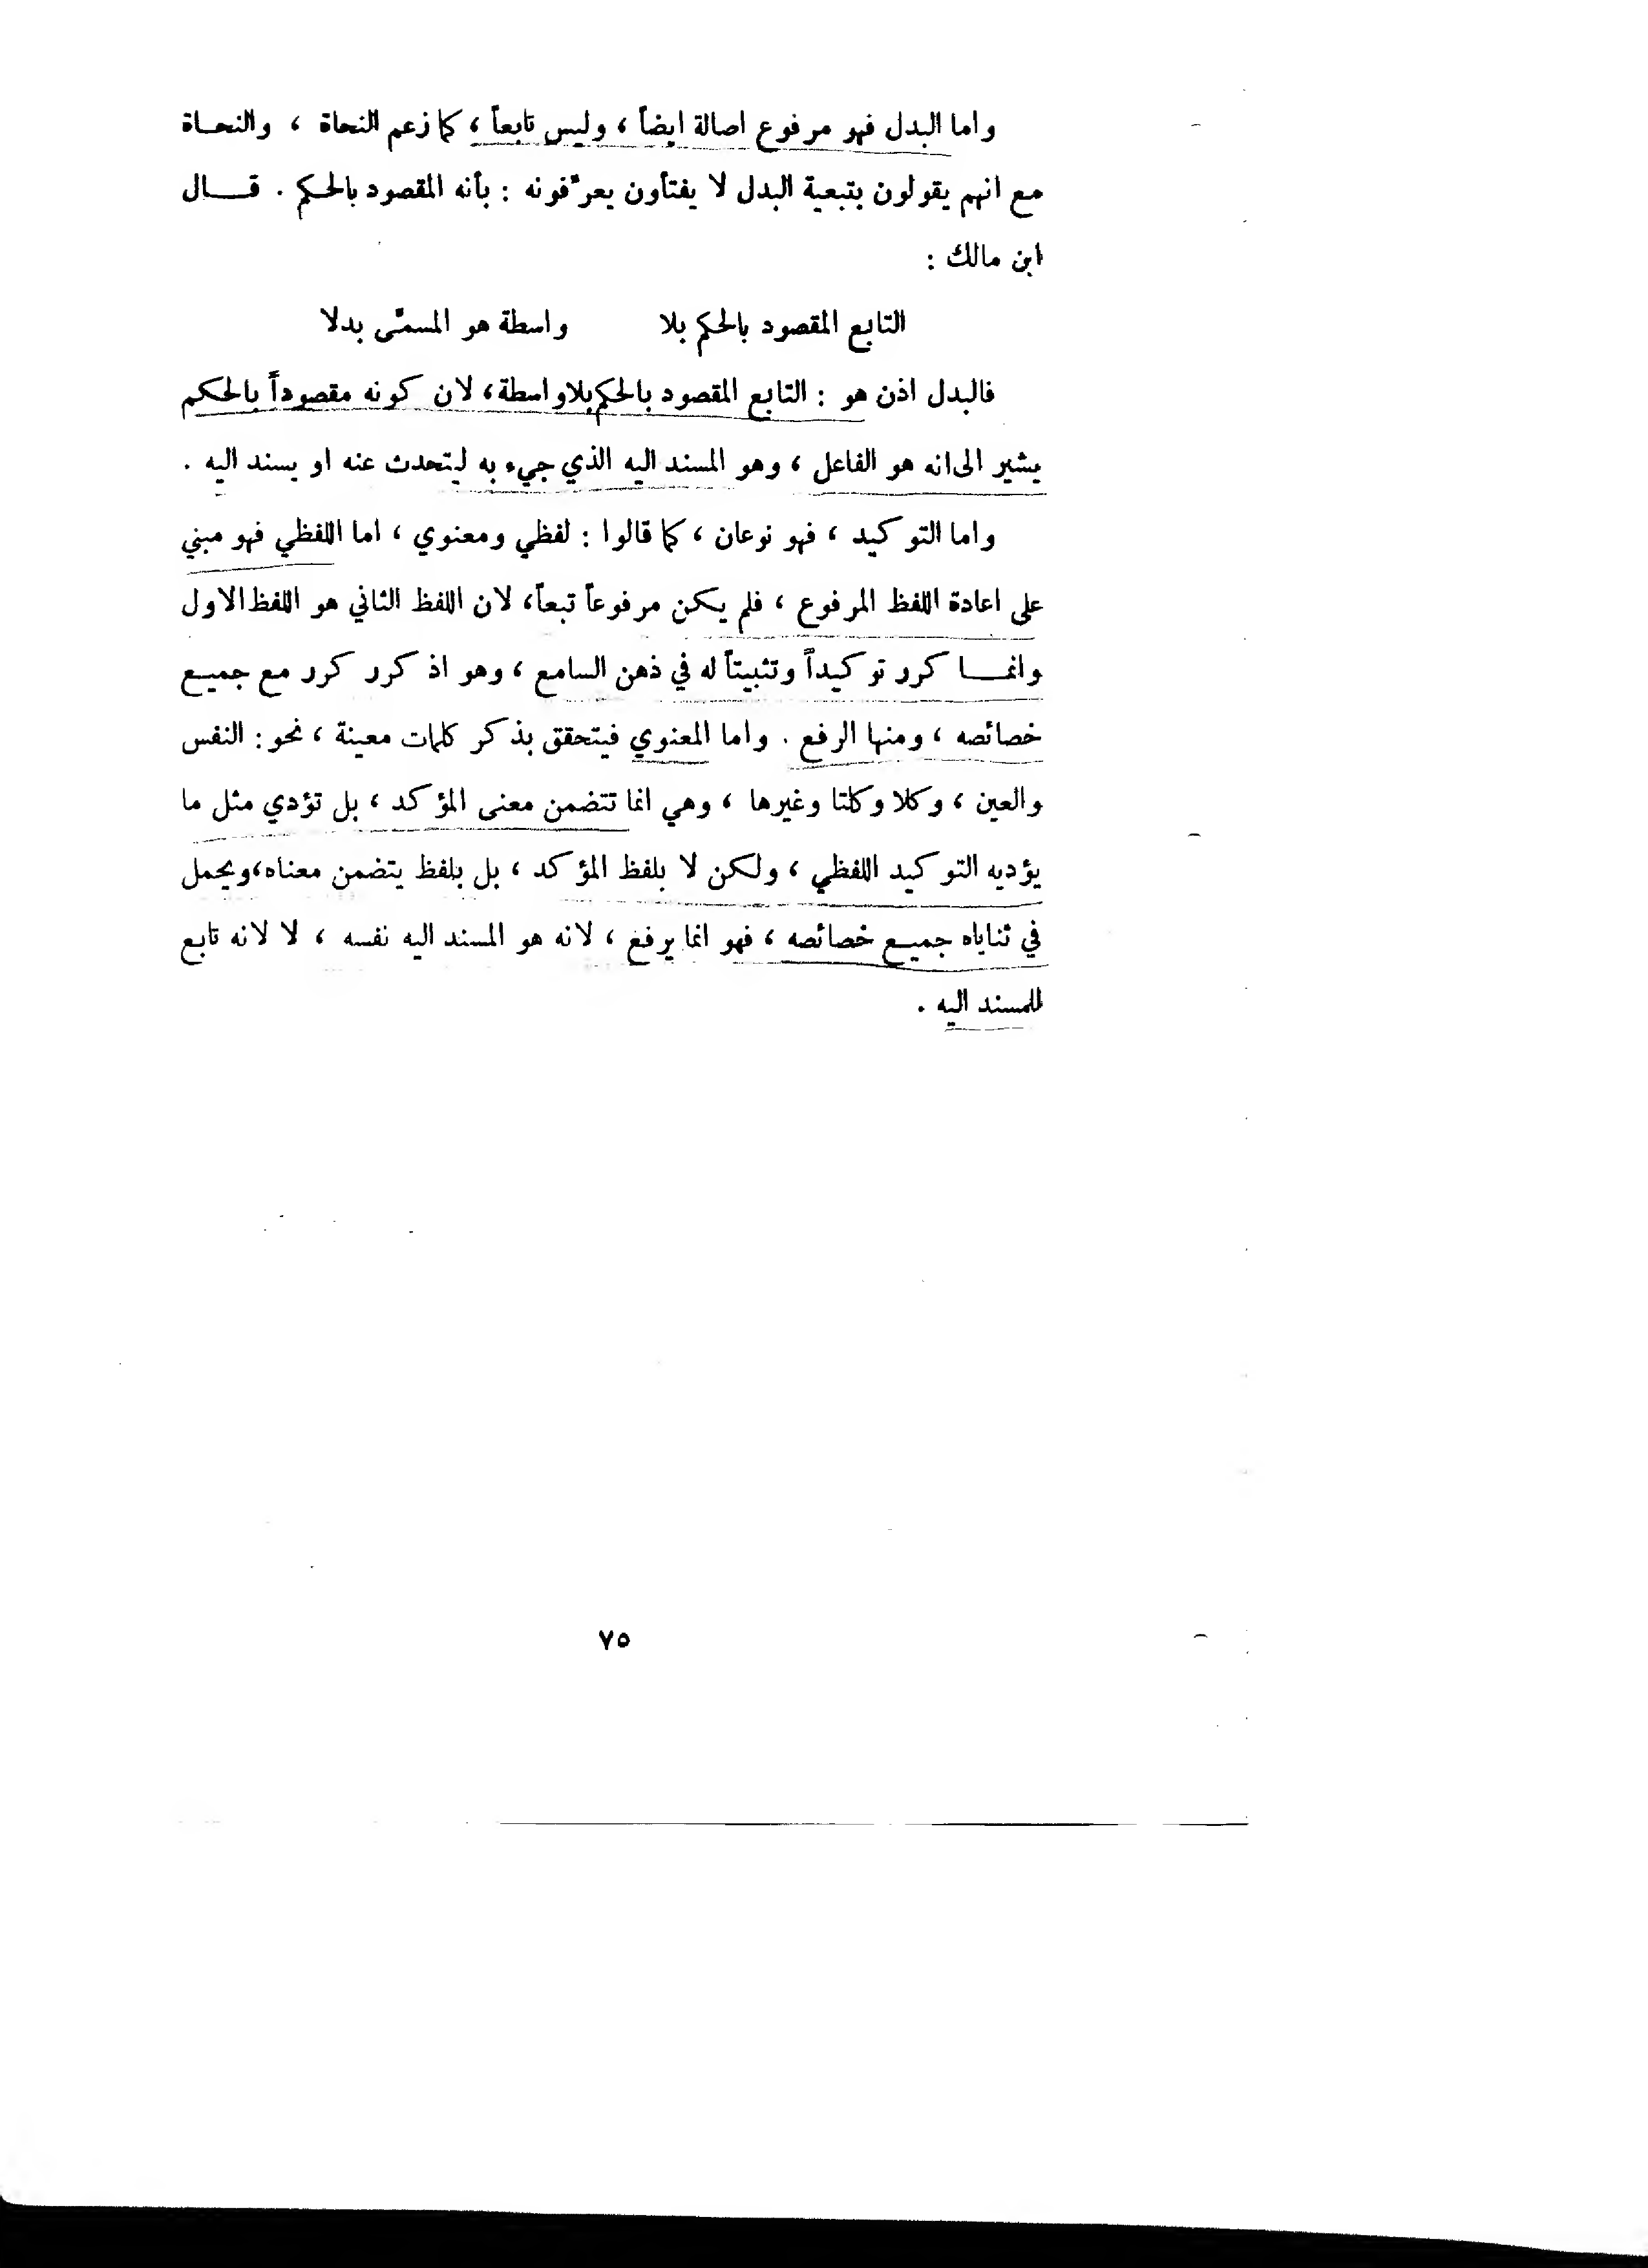 واما البدل فهو مرفوع اصالة ايضاً ، وليس تابعاً ، كما زعم النحاة ، والنحاة
مع انهم يقولون بتبعية البدل لا يفتأون يعرّفونه : بأنه المقصود بالحكم . قال
ابن مالك :
التابع المقصود بالحكم بلا واسطة هو المسمّى بدلا
فالبدل اذن هو : التابع المقصود بالحكم بلا واسطة ، لان كونه مقصوداً بالحكم
يشير الى انه هو الفاعل ، وهو المسند اليه الذي جيء به ليتحدث عنه او يسند اليه .
واما التوكيد ، فهو نوعان ، كما قالوا : لفظي ومعنوي ، اما اللفظي فهو مبني
على اعادة اللفظ المرفوع ، فلم يكن مرفوعاً تبعاً ، لان اللفظ الثاني هو اللفظ الاول
وانما كرر توكيداً وتثبيتاً له في ذهن السامع ، وهو اذ كرر كرر مع جميع
خصائصه ، ومنها الرفع . واما المعنوي فيتحقق بذكر كلمات معينة ، نحو : النفس
والعين ، وكلا وكلتا وغيرها ، وهي انما تتضمن معنى المؤكد ، بل تؤدي مثل ما
يؤديه التوكيد اللفظي ، ولكن لا بلفظ المؤكد ، بل بلفظ يتضمن معناه ، ويحمل
في ثناياه جميع خصائصه ، فهو انما يرفع ، لانه هو المسند اليه نفسه ، لا لانه تابع
للمسند اليه .
٧٥